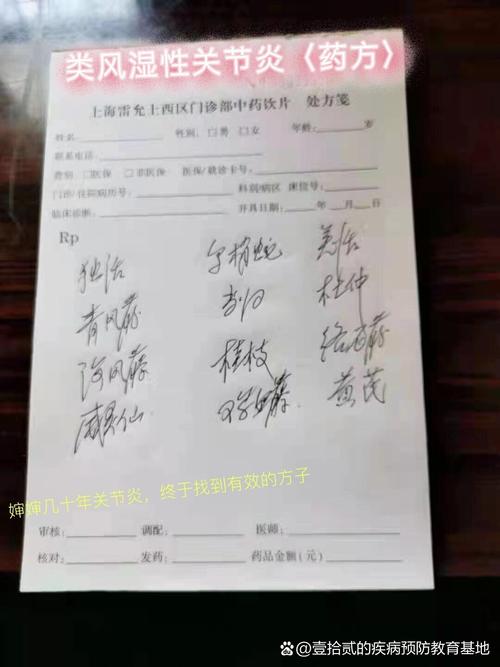 类风湿性关节炎〈药方〉
上海雷允上西区门诊部中药饮片 处方笺
姓名 性别：□男 □女 年龄： 岁
联系电话
费别 □医保 □非医保 医保/就诊卡号：
门诊/住院病历号： 科别/病区 床位号：
临床诊断： 开具日期： 年 月 日
Rp
独活 乌梢蛇 羌活
青风藤 当归 杜仲
海风藤 桂枝 络石藤
威灵仙 鸡血藤 黄芪
婶婶几十年关节炎，终于找到有效的方子
审核： 调配： 医师：
核对： 发药： 药品金额（元）：
@壹拾贰的疾病预防教育基地